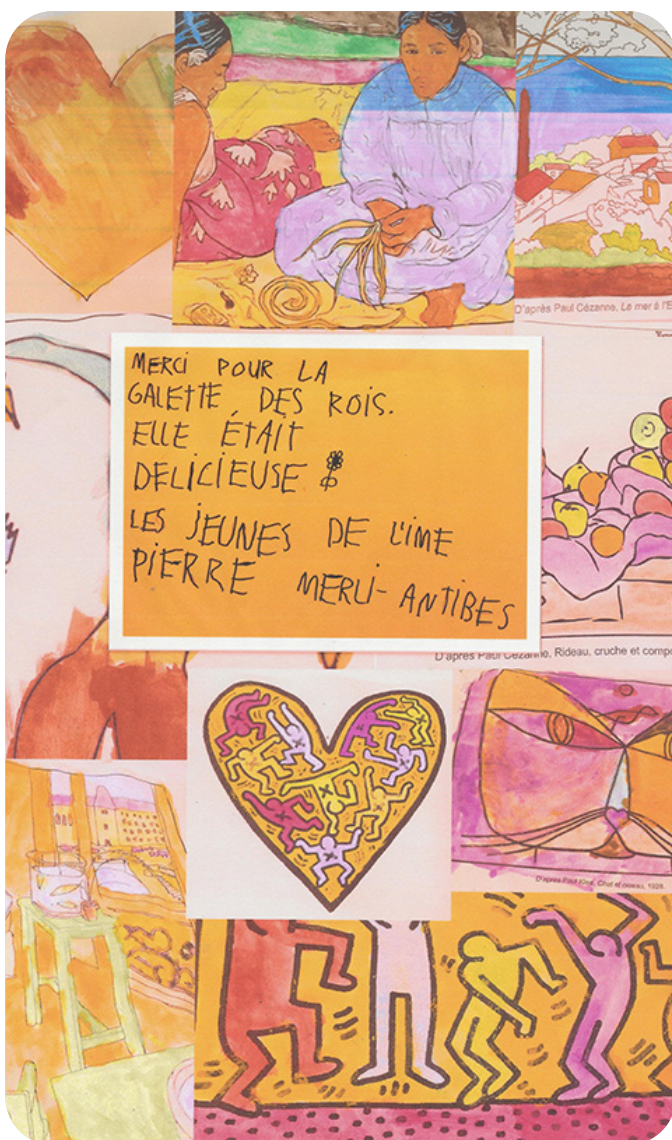 D'après Paul Cézanne, Le mer à l'E
MERCI POUR LA
GALETTE DES ROIS.
ELLE ÉTAIT
DELICIEUSE
LES JEUNES DE L'IME
PIERRE MERLI - ANTIBES
D'après Paul Cézanne, Rideau, cruche et compo
D'après Paul Klee, Chat et oiseau, 1928.